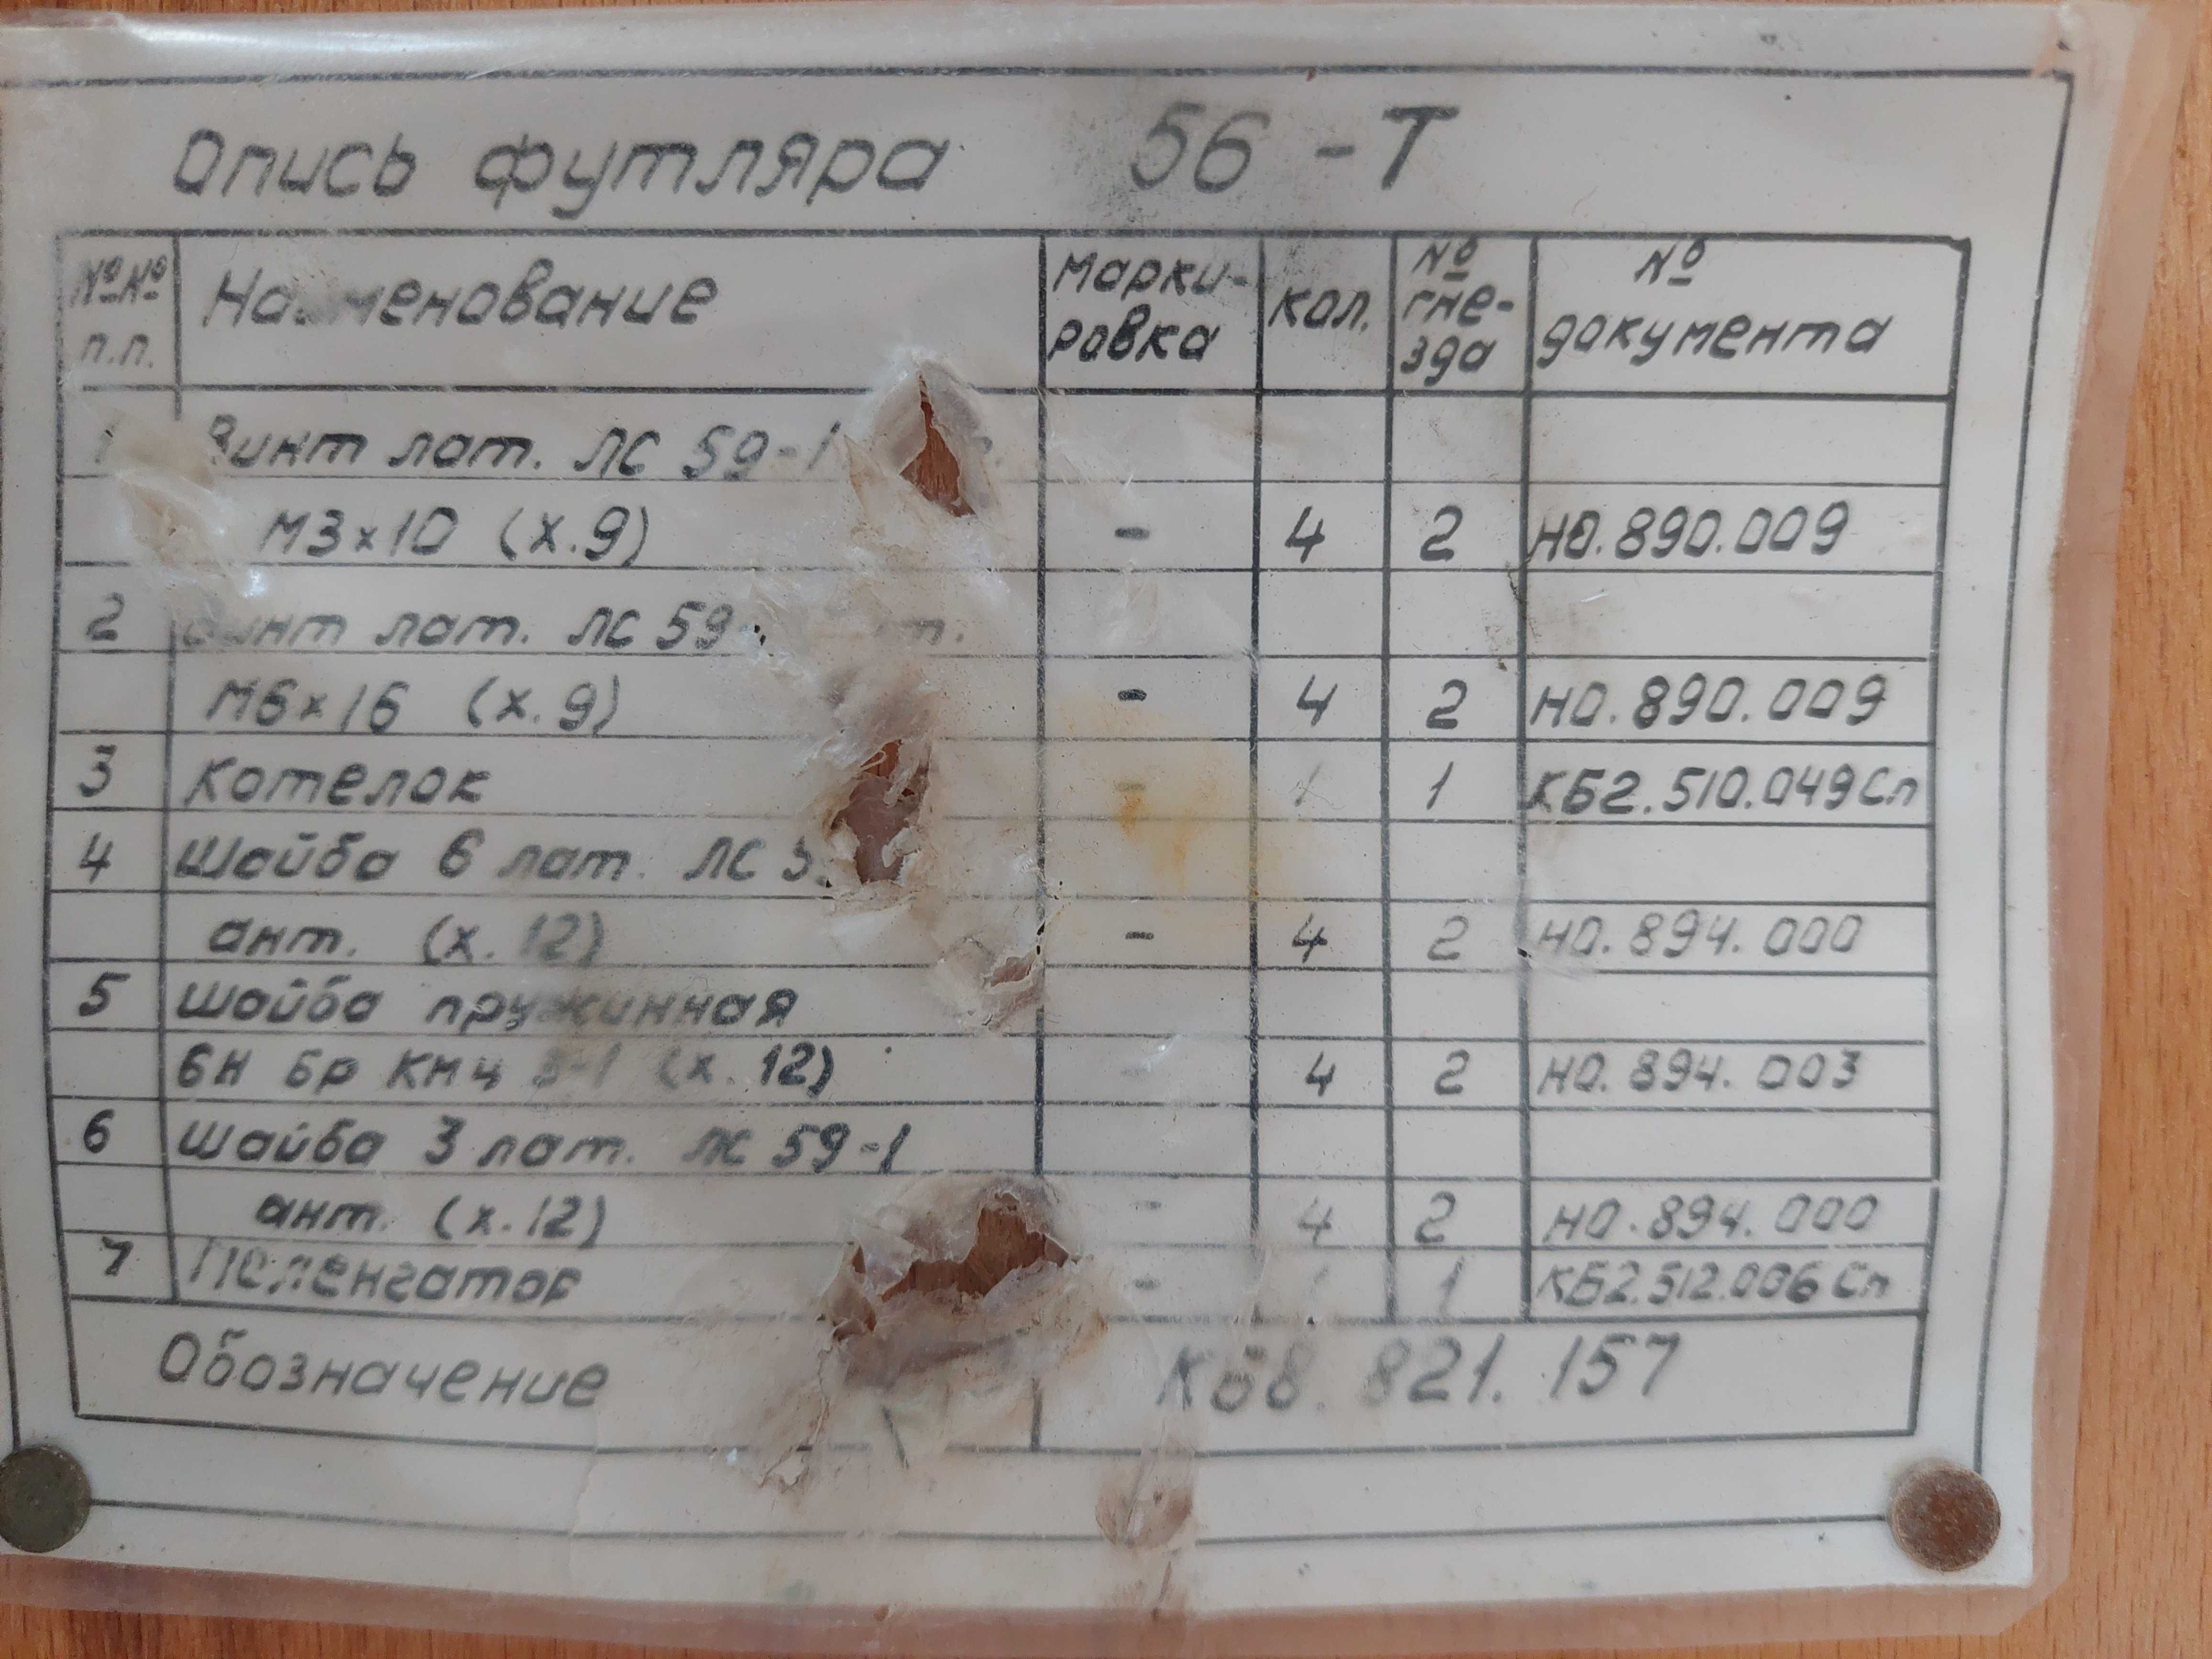 Опись футляра 56-Т
№№ п.п. Наименование Марки-ровка кол. № гне-зда № документа
1 Винт лат. ЛС 59-1
М3х10 (х.9) - 4 2 НО.890.009
2 Винт лат. ЛС 59-
М6х16 (х.9) - 4 2 НО.890.009
3 Котелок - 1 1 КБ2.510.049Сп
4 Шайба 6 лат. ЛС
ант. (х.12) - 4 2 НО.894.000
5 Шайба пружинная
6Н бр КМц 3-1 (х.12) - 4 2 НО.894.003
6 Шайба 3 лат. ЛС 59-1
ант. (х.12) - 4 2 НО.894.000
7 Пеленгатор - 1 1 КБ2.512.006Сп
Обозначение КБ8.821.157